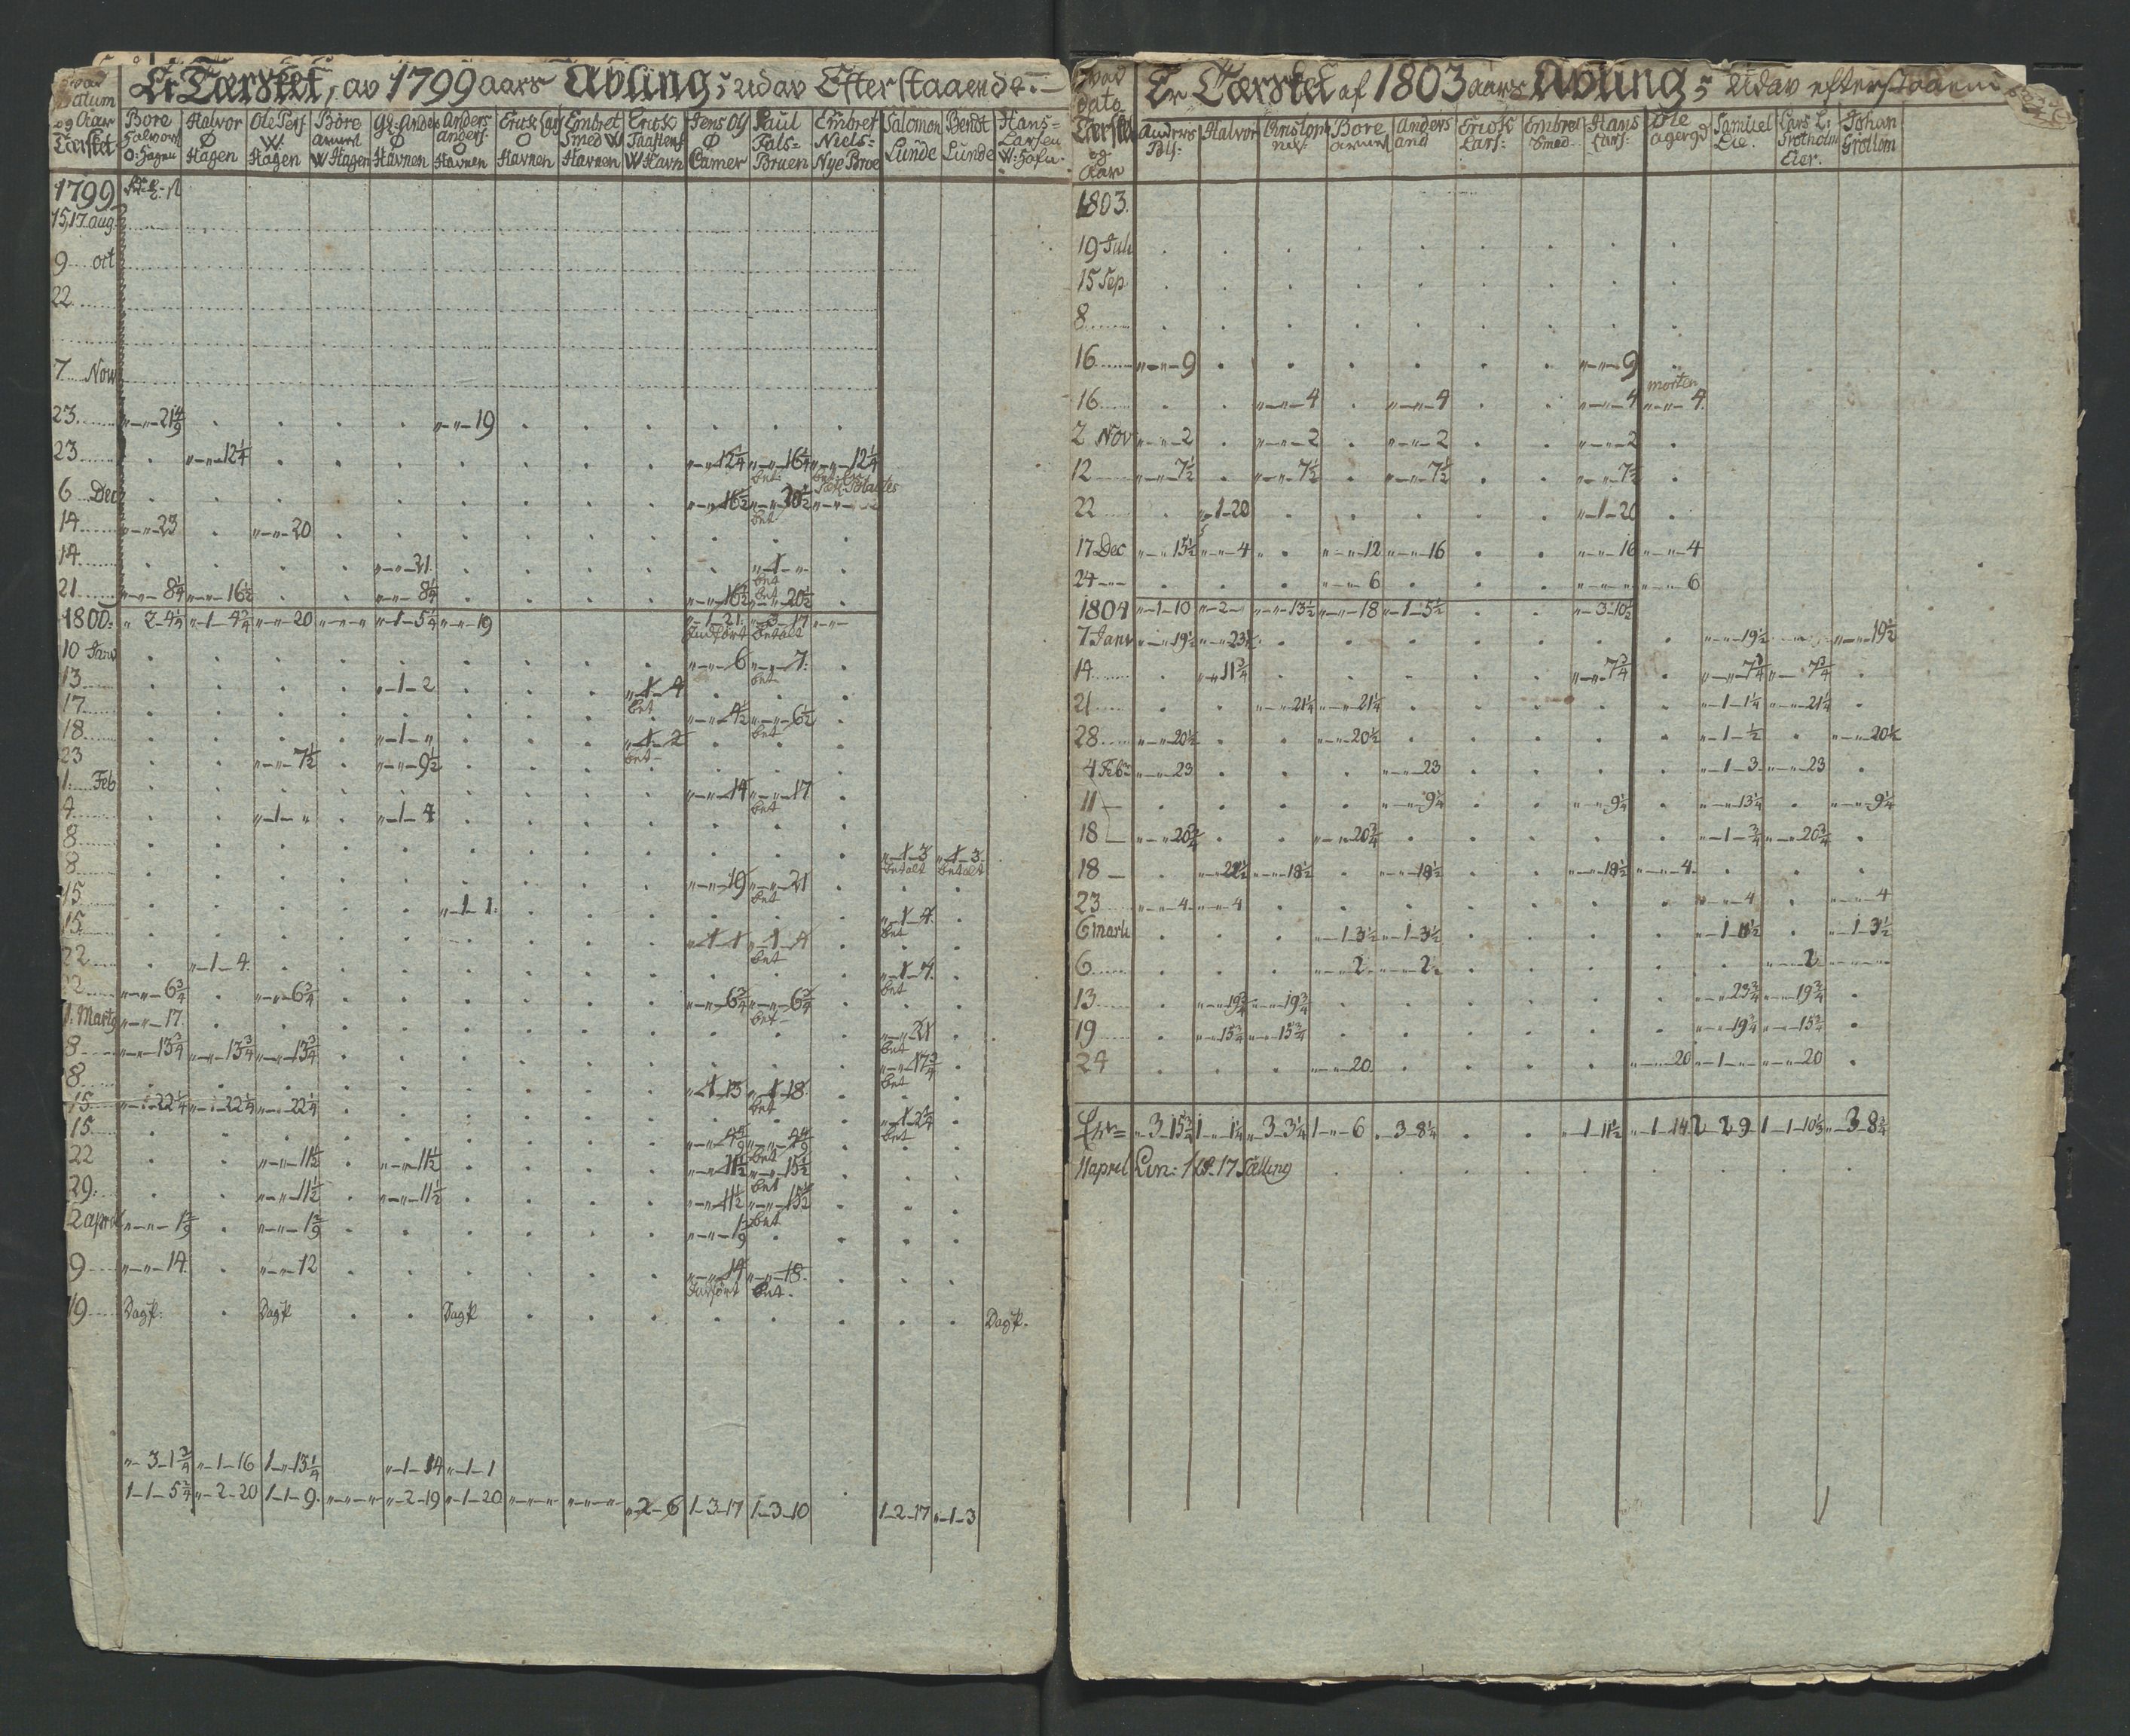 Er Tærsket, av 1799 aars Avling; udav Efterstaaende:
Datum og Aar Tærsket | Bore Halvors Ø: Hagen | Halvor Ø Hagen | Ole Pers W: Hagen | Bore W Hagen | Ø Havnen | Anders anders: Ø Havnen | Erick Lars Ø Havnen | Embret Smed W Havnen | Erick W Havn | Jens Ols Ø Camer | Paul Pals= Bruen | Embret Niels= Nye Broe | Salomon Lunde | Bendt Lunde | Hans= Larsen W: Hafn
1799
15,17 aug
9 oct
22
7 Nov
23 „-„-21 4/9 „-„-19
23 „-„-12¼ „-„-12¼ „-„-16¼ „-„-12¼
bet
6 Dec „-„-16½ „-„-20½
bet
14 „-„-23 „-„-20
14 „-„-21 „-1-„
bet
21 „-„-8¼ „-„-16½ „-„-8¼ „-„-16½ „-„-20½
1800: „ 2-4¼ „-1-4¾ „-„-20 „-„-„ „-1-5¼ „-„-19 „-1-21 „-3-17 „-„-
Indført betalt
10 Janv „-„-6 „-„-7
bet
13 „-1-2 „-1-4
bet
17 „-„-4½ „-„-6½
bet
18 „-1-„ „-1-2
bet
23 „-„-7½ „-„-9½
1. Feb „-„-14 „-„-17
bet
4 „-1-„ „-1-4
8 „-1-3 „-1-3
betalt betalt
8 „-„-19 „-„-21
bet
15 „-1-1 „-1-4
bet
15 „-1-1 „-1-4
bet
22 „-1-4 „-1-4
bet
22 „-„-6¾ „-„-6¾ „-„-6¾ „-„-6¾
bet
1. Marty „-„-17 „-„-21
bet
8 „-„-13¾ „-„-13¾ „-„-13¾ „-„-17¾
bet
8 „-1-13 „-1-18
bet
15 „-„-22¼ „-„-22¼ „-„-22¼ „-1-2¼
bet
15 „-„-4 4/9 „-„-4 4/9
bet
22 „-„-11½ „-„-11½ „-„-11½ „-„-15½
bet
29 „-„-11½ „-„-11½ „-„-11½ „-„-15½
bet
2 april „-„-1 2/9 „-„-1 2/9 „-„-1 2/9
9 „-„-14 „-„-12 „-„-14 „-„-18
Indført bet
19 Dagk: Dagk Dagk Dagk.
„-3-1¾ „-1-16 1-„-13¼ „-1-14 „-1-1
1-1-5¾ „-2-20 1-1-9 „-„-„ „-2-19 „-1-20 „-„-„ „-„-„ „-2-6 1-3-17 1-3-10 1-2-17 „-1-3
Er Tærsket af 1803 aars Avling; Udav efterstaaende
dato Tærsket og Aar | Anders Pils: | Halvor | Christoph Nils: | Bore | Anders and | Erick Lars: | Embret Smed | Hans Lars: | Ole agerød | Samuel Eie. | Lars L: Eier. | Johan Grøtlom
1803
19 Juli
15 Sep
8
16 „-„-9 „-„-9
morten
16 „-„-4 „-„-4 „-„-4 „-„-4
2 Nov „-„-2 „-„-2 „-„-2 „-„-2
12 „-„-7½ „-„-7½ „-„-7½ „-„-7½
22 „-1-20 „-1-20
17 Dec „-„-15½ „-„-4 „-„-12 „-„-16 „-„-16 „-„-4
24 „-„-6 „-„-„ „-„-6
1804 „-1-10 „-2-„ „-„-13½ „-„-18 „-1-5½ „-3-10½
7 Janv „-„-19½ „-„-23½ „-„-19½ „-„-19½
14 „-„-11¾ „-„-7¾ „-„-7¾ „-„-7¾
21 „-„-21¼ „-„-21¼ „-1-1¼ „-„-21¼
28 „-„-20½ „-„-20½ „-1-½ „-„-20½
4 Feb „-„-23 „-„-23 „-1-3 „-„-23
11 „-„-9¼ „-„-9¼ „-„-13¼ „-„-9¼
18 „-„-20¾ „-„-20¾ „-1-¾ „-„-20¾
18 „-„-22½ „-„-18½ „-„-18½ „-„-18½ „-„-4
23 „-„-4 „-„-4 „-„-4 „-„-4
6 Marti „-1-3½ „-1-3½ „-1-3½
6 „-„-2 „-„-2 „-„-2 „-„-„
13 „-„-19¾ „-„-19¾ „-„-23¾ „-„-19¾
19 „-„-15¾ „-„-15¾ „-„-19¾ „-„-15¾
24 „-„-20 „-„-20 „-1-„ „-„-20
„-3-15¾ 1-„-1¼ „-3-3¼ 1-„-6 „-3-8¼ „-1-11½ „-1-14 2-2-9 1-1-10½ „-3-8¾
11 april Lin: 17 Sælling